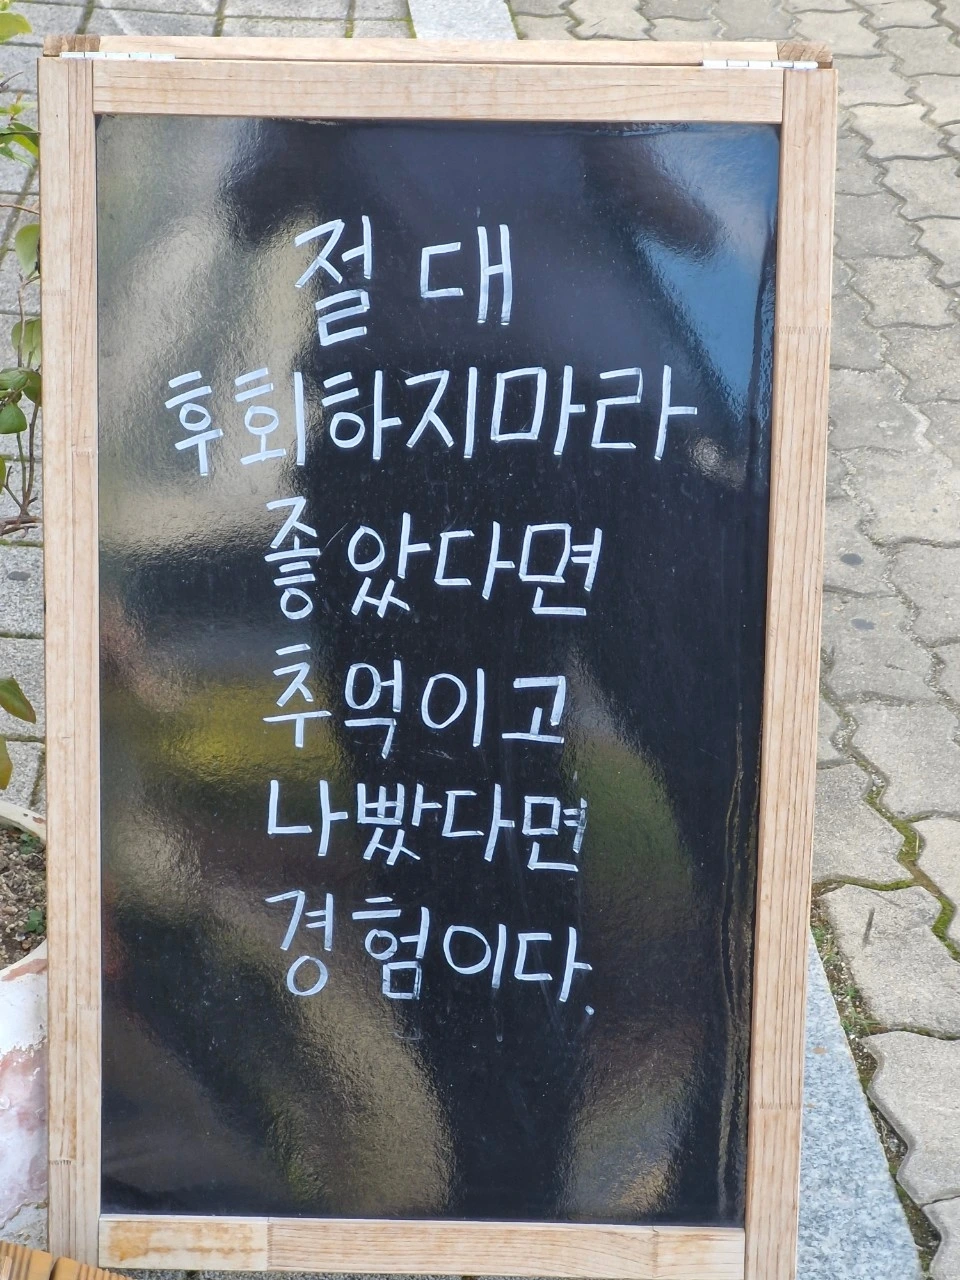 절대
후회하지마라
좋았다면
추억이고
나빴다면
경험이다.